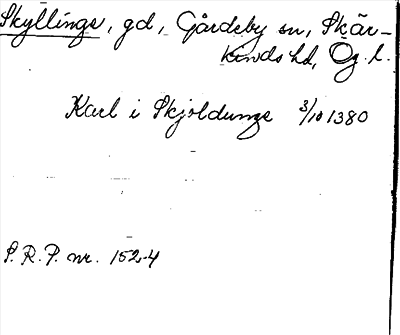 Skyllinge, gd, Gårdeby sn, Skär-
kinds hd, Ög. l.
Karl i Skjoldunge 3/10 1380
S. R. P. nr. 1524